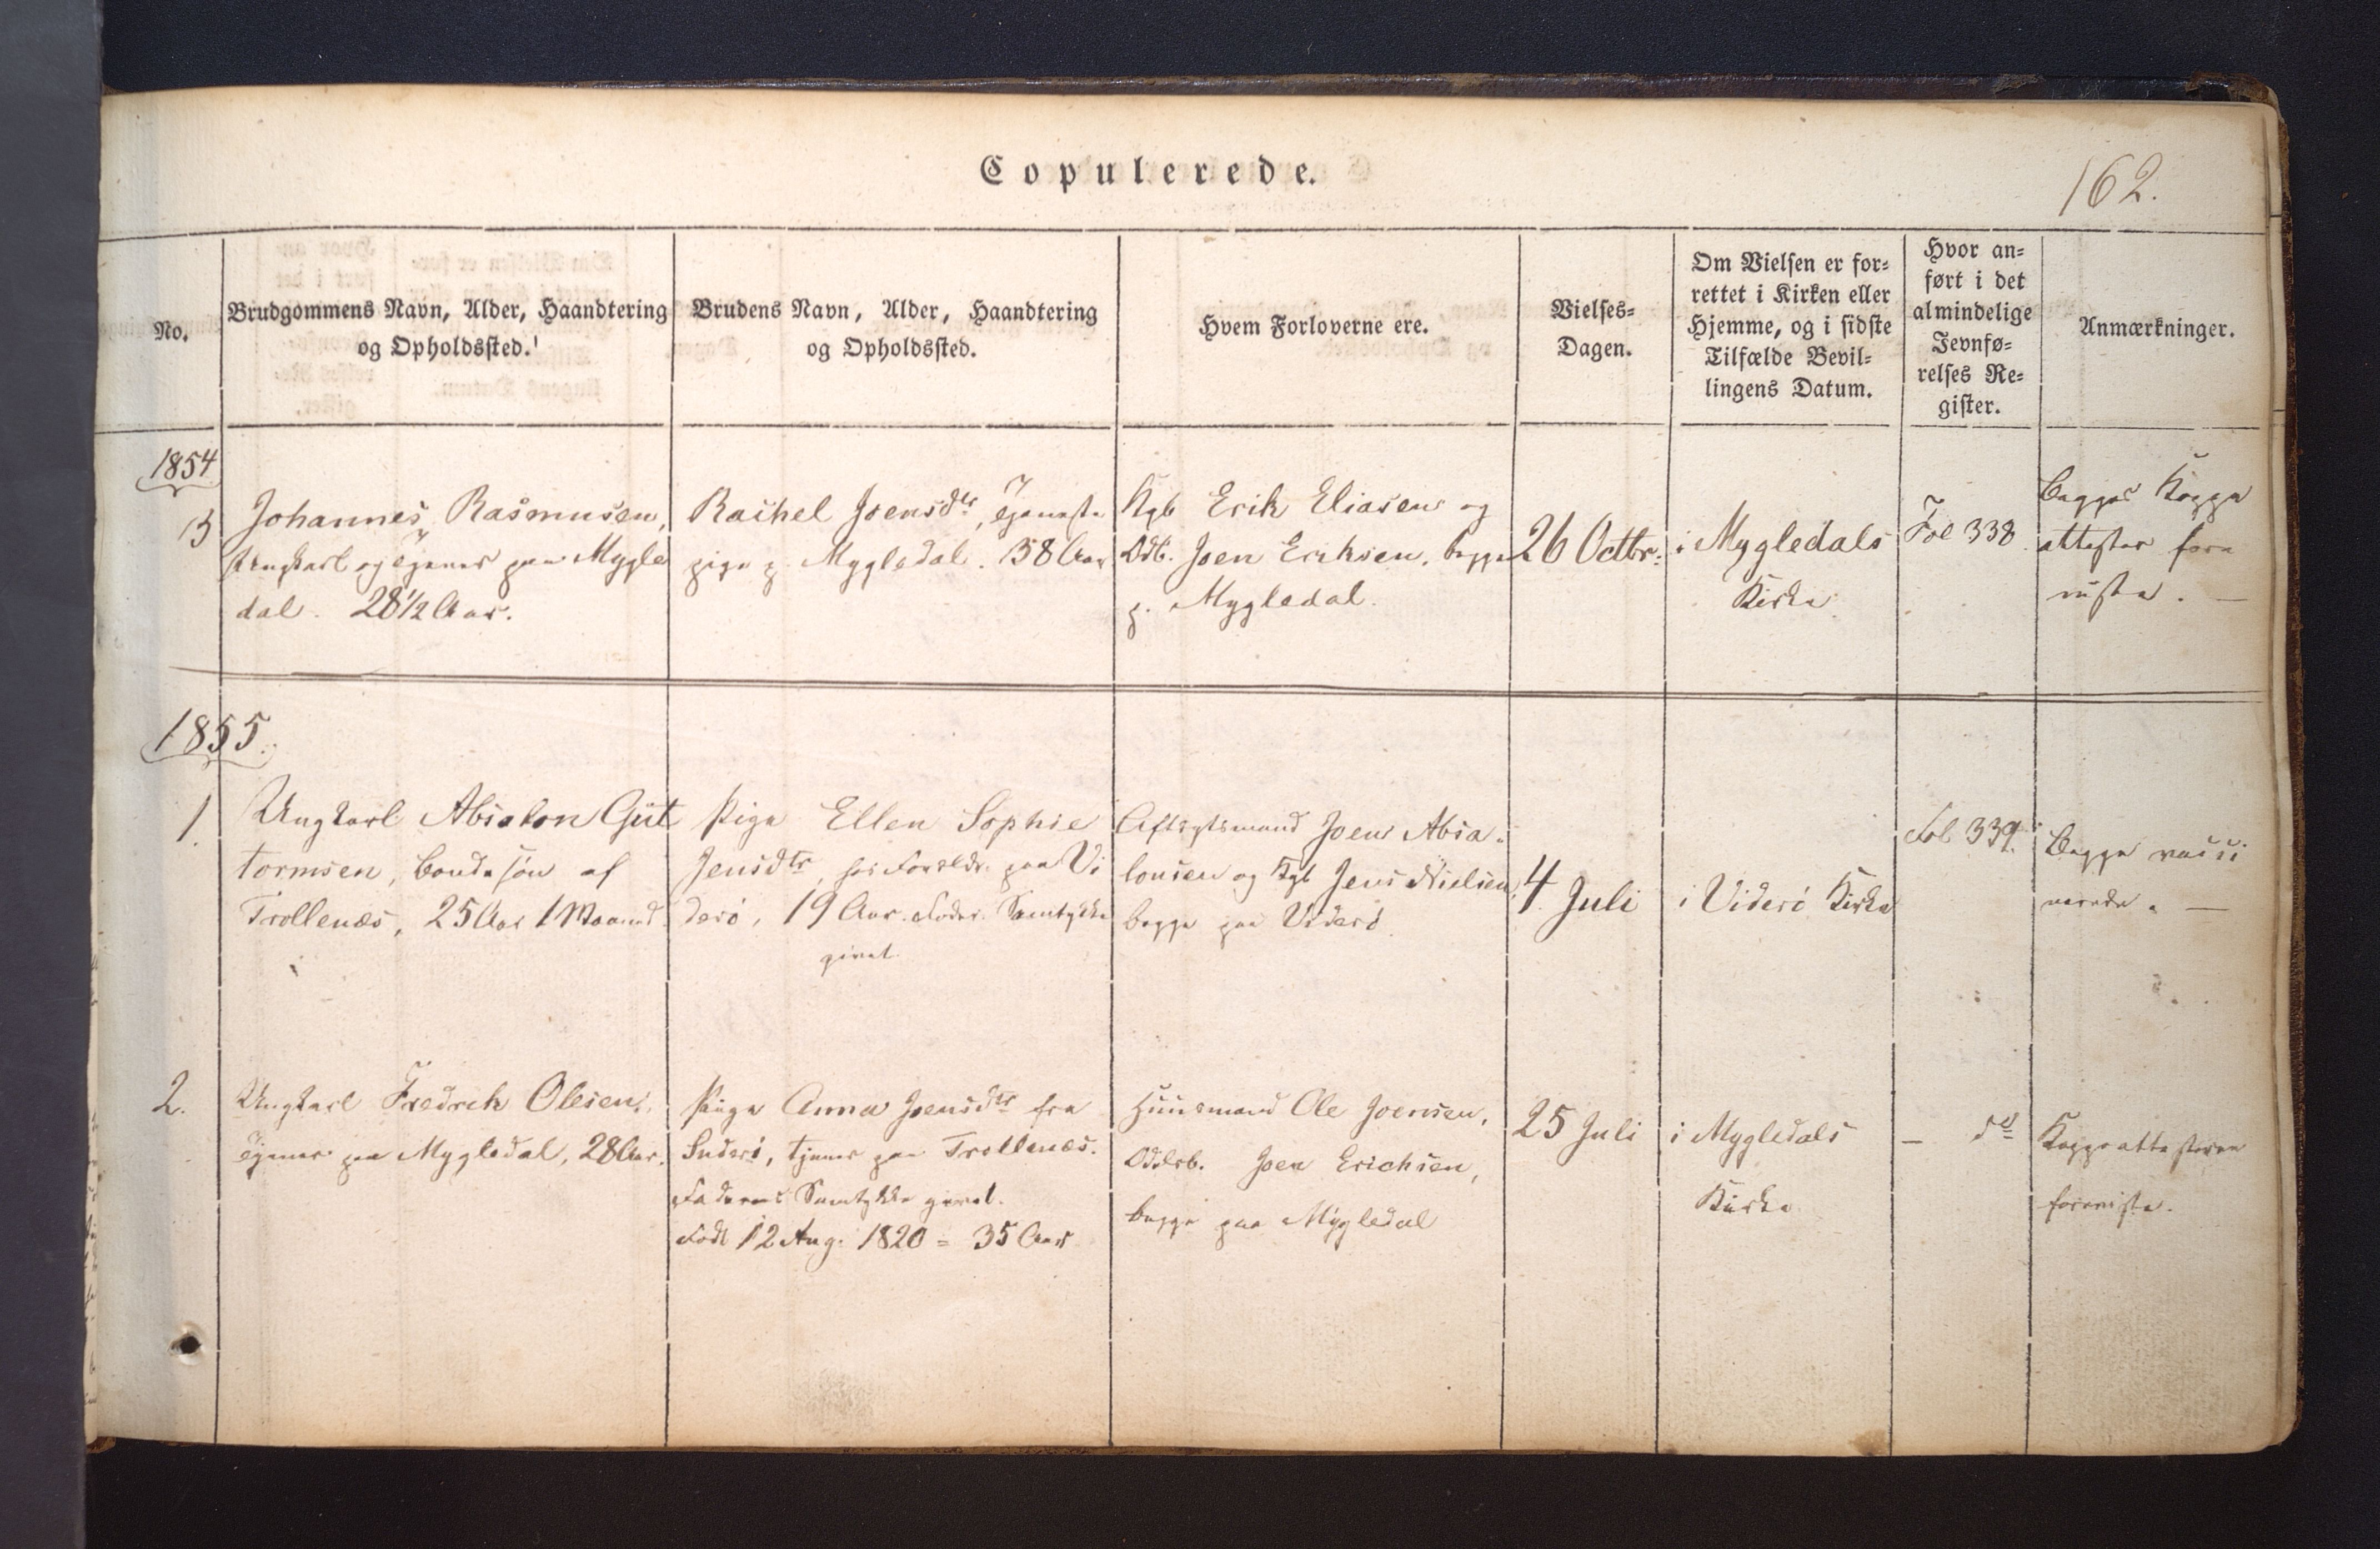 Copulerede.
162.
No.
Brudgommens Navn, Alder, Haandtering
og Opholdssted.
Brudens Navn, Alder, Haandtering
og Opholdssted.
Hvem Forloverne ere.
Vielses-
Dagen.
Om Vielsen er for-
rettet i Kirken eller
Hjemme, og i sidste
Tilfælde Bevil-
lingens Datum.
Hvor an-
ført i det
almindelige
Jevnfø-
relses Re-
gister.
Anmærkninger.
1854
Johannes Rasmusen,
Ungkarl og tjener paa Mygle
dal. 28 1/2 Aar.
Rachel Joensdtr, Tjeneste
pige p. Mygledal. 38 Aar
Kgb Erik Eliasen og
Odb. Joen Eriksen, begge
p. Mygledal.
26 Octbr.
i Mygledals
Kirke
Fol 338
Begges Koppe
attester fore
viste.
1855.
1.
Ungkarl Absalon Gut
tormsen, Bondesøn af
Trollenæs, 25 Aar 1 Maaned
Pige Ellen Sophie
Jensdtr, hos Forældr. paa Vi
derø, 19 Aar. Fader. Samtykke
givet
Aftægtsmand Joen Absa-
lonsen og Kgb Jens Nielsen,
begge paa Viderø
4 Juli
i Viderø Kirke
Fol 339.
Begge vacci
nerede.
2.
Ungkarl Fredrek Olesen,
tjener paa Mygledal, 28 Aar.
Pige Anna Joensdtr fra
Suderø, tjener paa Trollenæs.
Faderens Samtykke givet.
Født 12 Aug. 1820 = 35 Aar
Huusmand Ole Joensen,
Odelsb. Joen Erichsen,
begge paa Mygledal
25 Juli
i Mygledals
Kirke
- do
Koppeattesterne
foreviste.